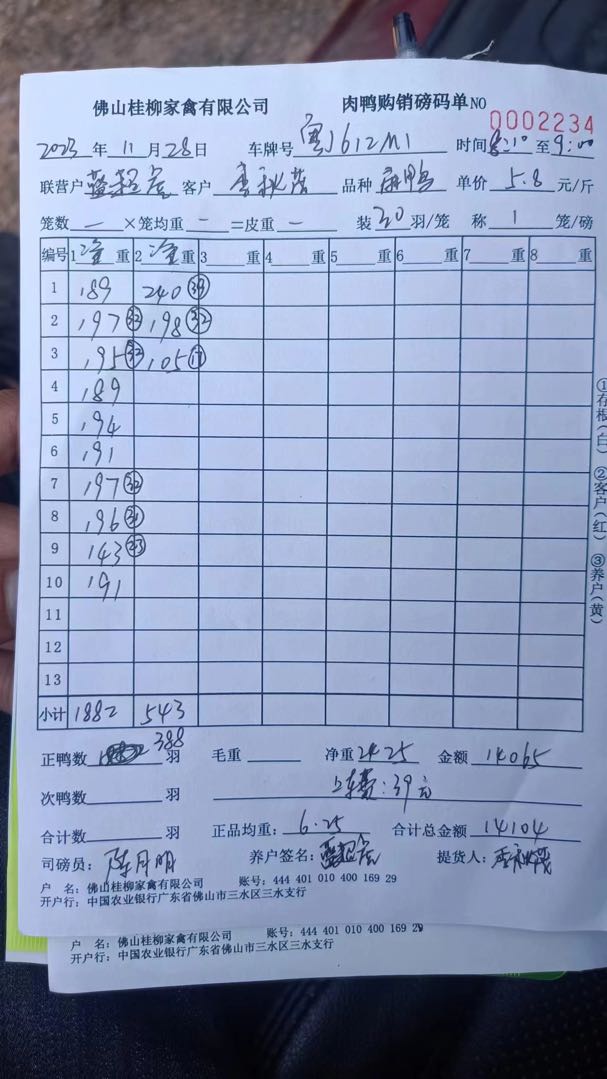 佛山桂柳家禽有限公司 肉鸭购销磅码单NO 0002234
2023年11月28日 车牌号 粤J612M1 时间8:10至9:00
联营户 客户 品种麻鸭 单价5.8元/斤
笼数一×笼均重一=皮重一 装30羽/笼 称1笼/磅
编号 1净重 2净重 3重 4重 5重 6重 7重 8重
1 189 240
2 197 32 198 32
3 195 32 105 17
4 189
5 194
6 191
7 197
8 196 31
9 143 23
10 191
11
12
13
小计 1882 543
正鸭数388羽 毛重 净重2425 金额14065
次鸭数羽 上车费:39元
合计数羽 正品均重:6.25 合计总金额14104
司磅员:陈月明 养户签名: 提货人:
户 名:佛山桂柳家禽有限公司 账号:444 401 010 400 169 29
开户行:中国农业银行广东省佛山市三水区三水支行
①存根(白) ②客户(红) ③养户(黄)
户 名:佛山桂柳家禽有限公司 账号:444 401 010 400 169 29
开户行:中国农业银行广东省佛山市三水区三水支行